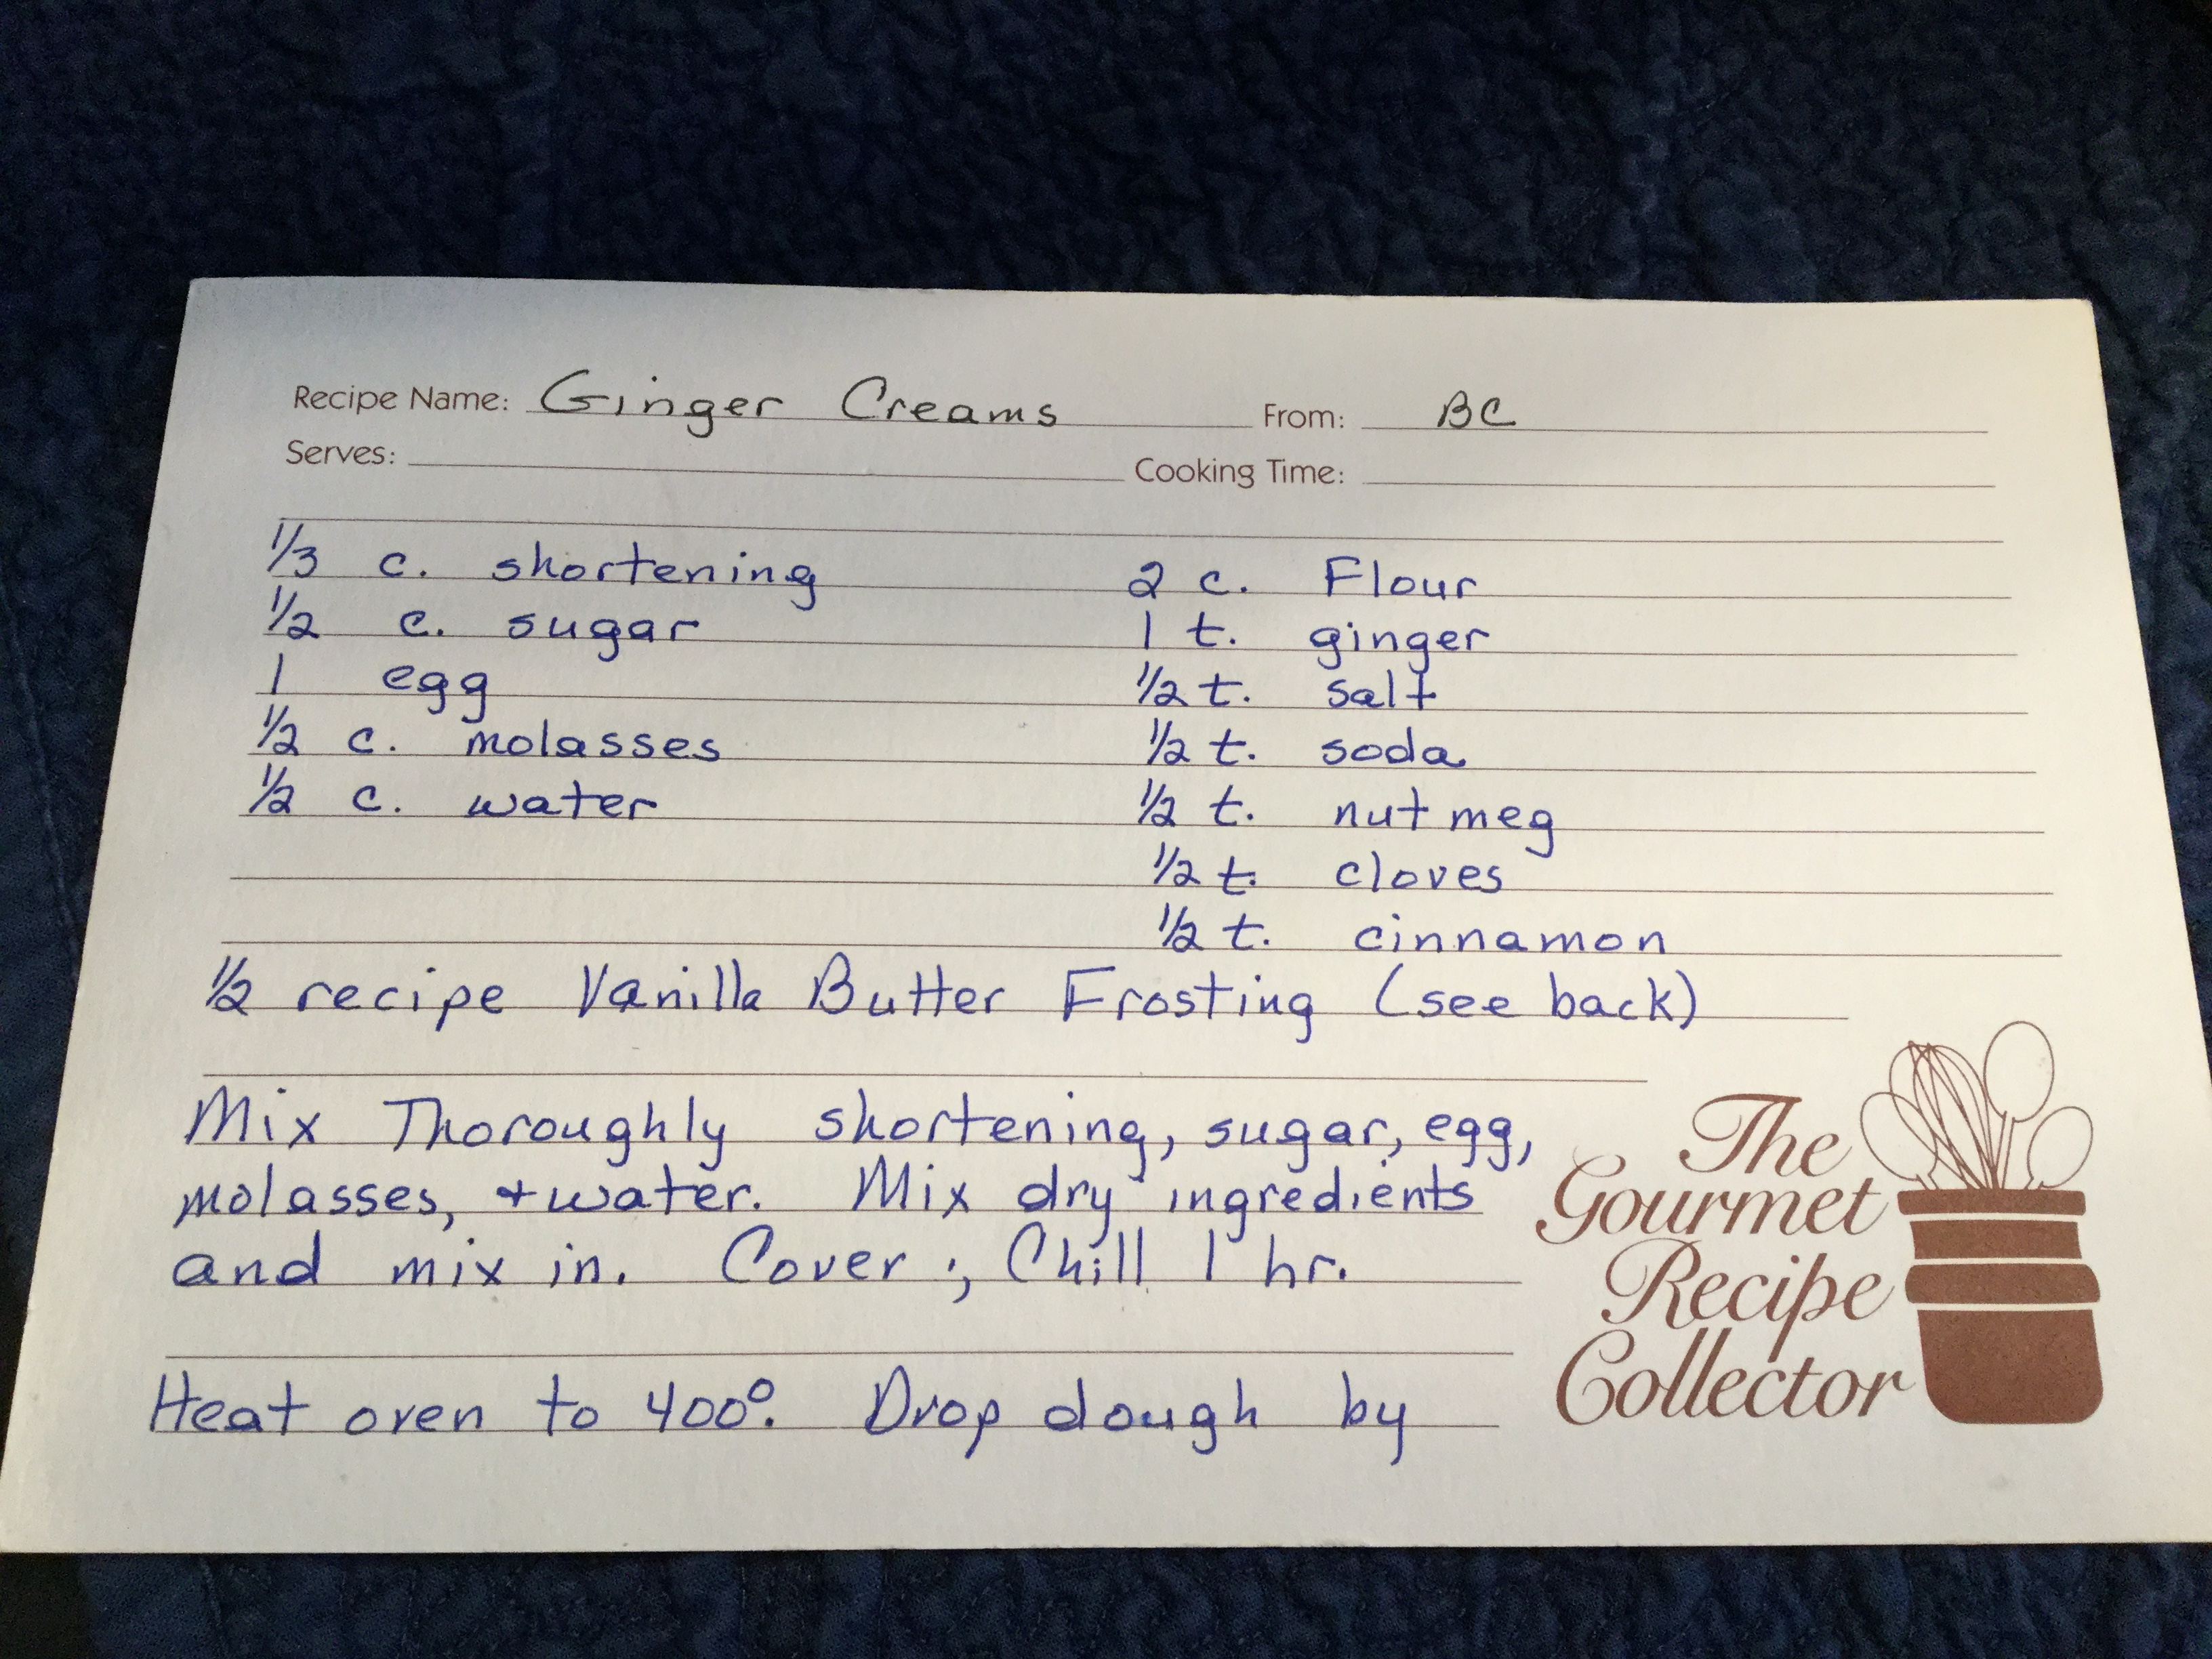 Recipe Name: Ginger Creams From: BC
Serves: Cooking Time:
1/3 c. shortening 2 c. Flour
1/2 c. sugar 1 t. ginger
1 egg 1/2 t. salt
1/2 c. molasses 1/2 t. soda
1/2 c. water 1/2 t. nutmeg
1/2 t. cloves
1/2 t. cinnamon
1/2 recipe Vanilla Butter Frosting (see back)
Mix Thoroughly shortening, sugar, egg,
molasses, + water. Mix dry ingredients
and mix in. Cover; Chill 1 hr.
Heat oven to 400°. Drop dough by
The
Gourmet
Recipe
Collector